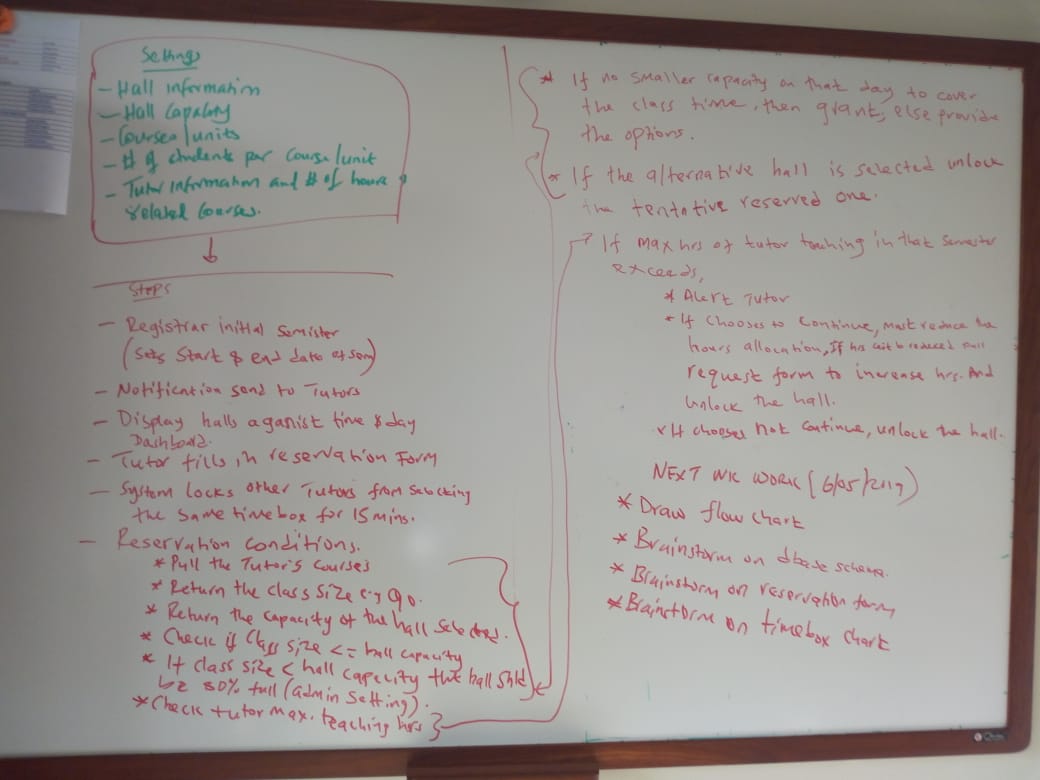 Settings
- Hall information
- Hall Capacity
- Courses/units
- # of students per course/unit
- Tutor information and # of hours
related courses.
Steps
- Registrar initial Semister
(Sets Start & end date of sem)
- Notification send to Tutors
- Display halls aganist time & day
Dashboard.
- Tutor fills in reservation Form
- System locks other Tutors from selecting
the same timebox for 15 mins.
- Reservation conditions.
* Pull the Tutor's Courses
* Return the class size e.g 90.
* Return the capacity of the hall selected.
* Check if Class size <= hall capacity
* If class size < hall capacity the hall shld
be 80% full (admin setting).
* Check tutor max. teaching hrs }
* If no smaller capacity on that day to cover
the class time, then grant, else provide
the options.
* If the alternative hall is selected unlock
the tentative reserved one.
If max hrs of tutor teaching in that semester
exceeds,
* Alert Tutor
* If chooses to continue, must reduce the
hours allocation, If hrs reduced
request form to increase hrs. And
unlock the hall.
* If chooses not continue, unlock the hall.
NEXT WK WORK (6/05/2019)
* Draw flow chart
* Brainstorm on dbase schema.
* Brainstorm on reservation form
* Brainstorm on timebox chart